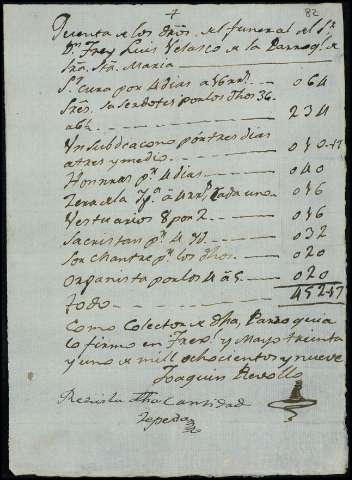 +
82
Quenta de los dros. del funeral del Sr.
Dn. Frey Luis Velasco de la Parroqa. de
Sta. Maria
Sr. cura por 4 dias a 16 rrs. 064
Sres. Saserdotes por los dhos 36
a 6½ 234
Un Subdeacono por tres dias
a tres y medio 010-17
Honrras pr. 4 dias 040
Zera de la Ya. a 4 rrs. cada uno 016
Vestuarios 8 por 2 016
Sacristan pr. 4 Yd. 032
Sor chantre pr. los dhos. 020
Organista por los 4 a 5 020
Todo 452-17
Como Colector de dha. Parroquia
lo firmo en Frexl. y Mayo treinta
y uno de mil ochocientos y nueve
Joaquin Rebollo
Recivi la dha Cantidad
Zepeda